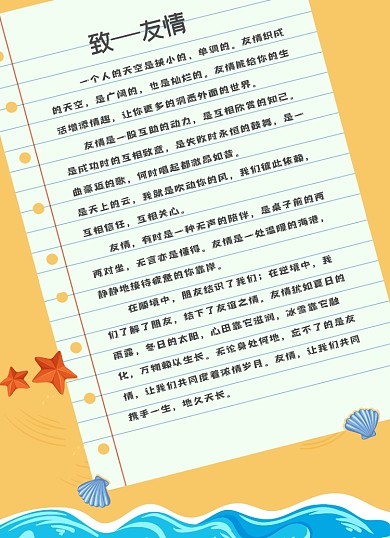 致—友情
一个人的天空是狭小的，单调的。友情织成
的天空，是广阔的，也是灿烂的。友情能给你的生
活增添情趣，让你更多的洞悉外面的世界。
友情是一股互助的动力，是互相欣赏的知己。
是成功时的互相致意，是失败时永恒的鼓舞，是一
曲豪迈的歌，何时唱起都激昂如昔。
是天上的云，我就是吹动你的风，我们彼此依赖，
互相信任，互相关心。
友情，有时是一种无声的陪伴，是桌子前的两
两对坐，无言亦是懂得。友情是一处温暖的海港，
静静地接待疲惫的你靠岸。
在顺境中，朋友结识了我们；在逆境中，我
们了解了朋友，结下了友谊之情，友情犹如夏日的
雨露，冬日的太阳，心田靠它滋润，冰雪靠它融
化，万物赖以生长。无论身处何地，忘不了的是友
情，让我们共同度着浓情岁月。友情，让我们共同
携手一生，地久天长。